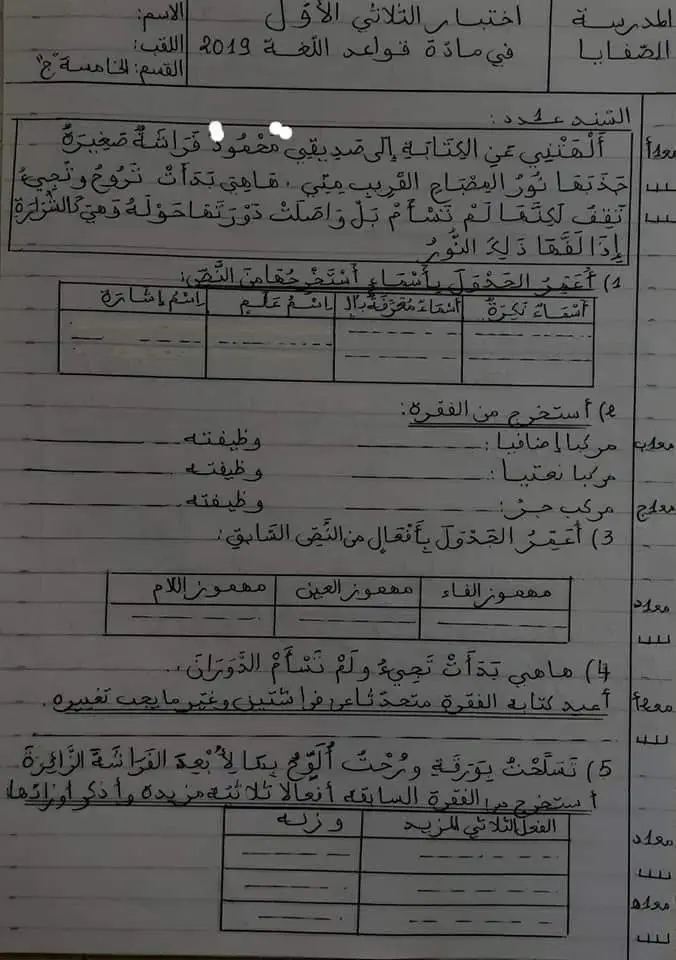 المدرسة
الصفايا
اختبار الثلاثي الأوّل
في مادّة قواعد اللّغة 2019
الاسم:
اللقب:
القسم: الخامسة "ج"
السّند عـ1ـدد:
أَلْهَتْنِي عَنِ الكِتَابَةِ إِلَى صَدِيقِي مَحْمُود فَرَاشَةٌ صَغِيرَةٌ
جَذَبَهَا نُورُ المِصْبَاحِ القَرِيبِ مِنِّي. هَاهِيَ بَدَأَتْ تَرُوحُ وتَجِيءُ
تَقِفُ لَكِنَّهَا لَمْ تَسْأَمْ بَلْ وَاصَلَتْ دَوْرَتَهَا حَوْلَهُ وَهِيَ كَالشَّرَارَةِ
إِذَا لَفَّهَا ذَلِكَ النُّورُ
1) أُعَمِّرُ الجَدْوَلَ بِأَسْمَاءٍ أَسْتَخْرِجُهَا مِنَ النَّصِّ:
أَسْمَاءٌ نَكِرَةٌ
أَسْمَاءٌ مُعَرَّفَةٌ بِال
اِسْمُ عَلَمٍ
اِسْمُ إِشَارَة
2) أستخرج من الفقرة:
مركبا إضافيا: وظيفته
مركبا نعتيا: وظيفته
مركب جرّ: وظيفته
3) أُعَمِّرُ الجَدْوَلَ بِأَفْعَالٍ من النَّصِّ السَّابِقِ:
مهموز الفاء
مهموز العين
مهموز اللام
4) هاهي بَدَأَتْ تَجِيءُ ولَمْ تَسْأَمْ الدَّوَرَانَ..
أعيد كتابة الفقرة متحدثا عن فراشتين وغيّر ما يجب تغييره.
5) تَسَلَّحْتُ بِوَرَقَةٍ ورُحْتُ أُلَوِّحُ بِهَا لِأُبْعِدَ الفَرَاشَةَ الزَّائِرَةَ
أستخرج من الفقرة السابقة أفعالا ثلاثية مزيدة وأذكر أوزانها
الفعل الثلاثي المزيد
وزنه
مع1أ
مع1ب
مع1ج
مع1د
مع1د